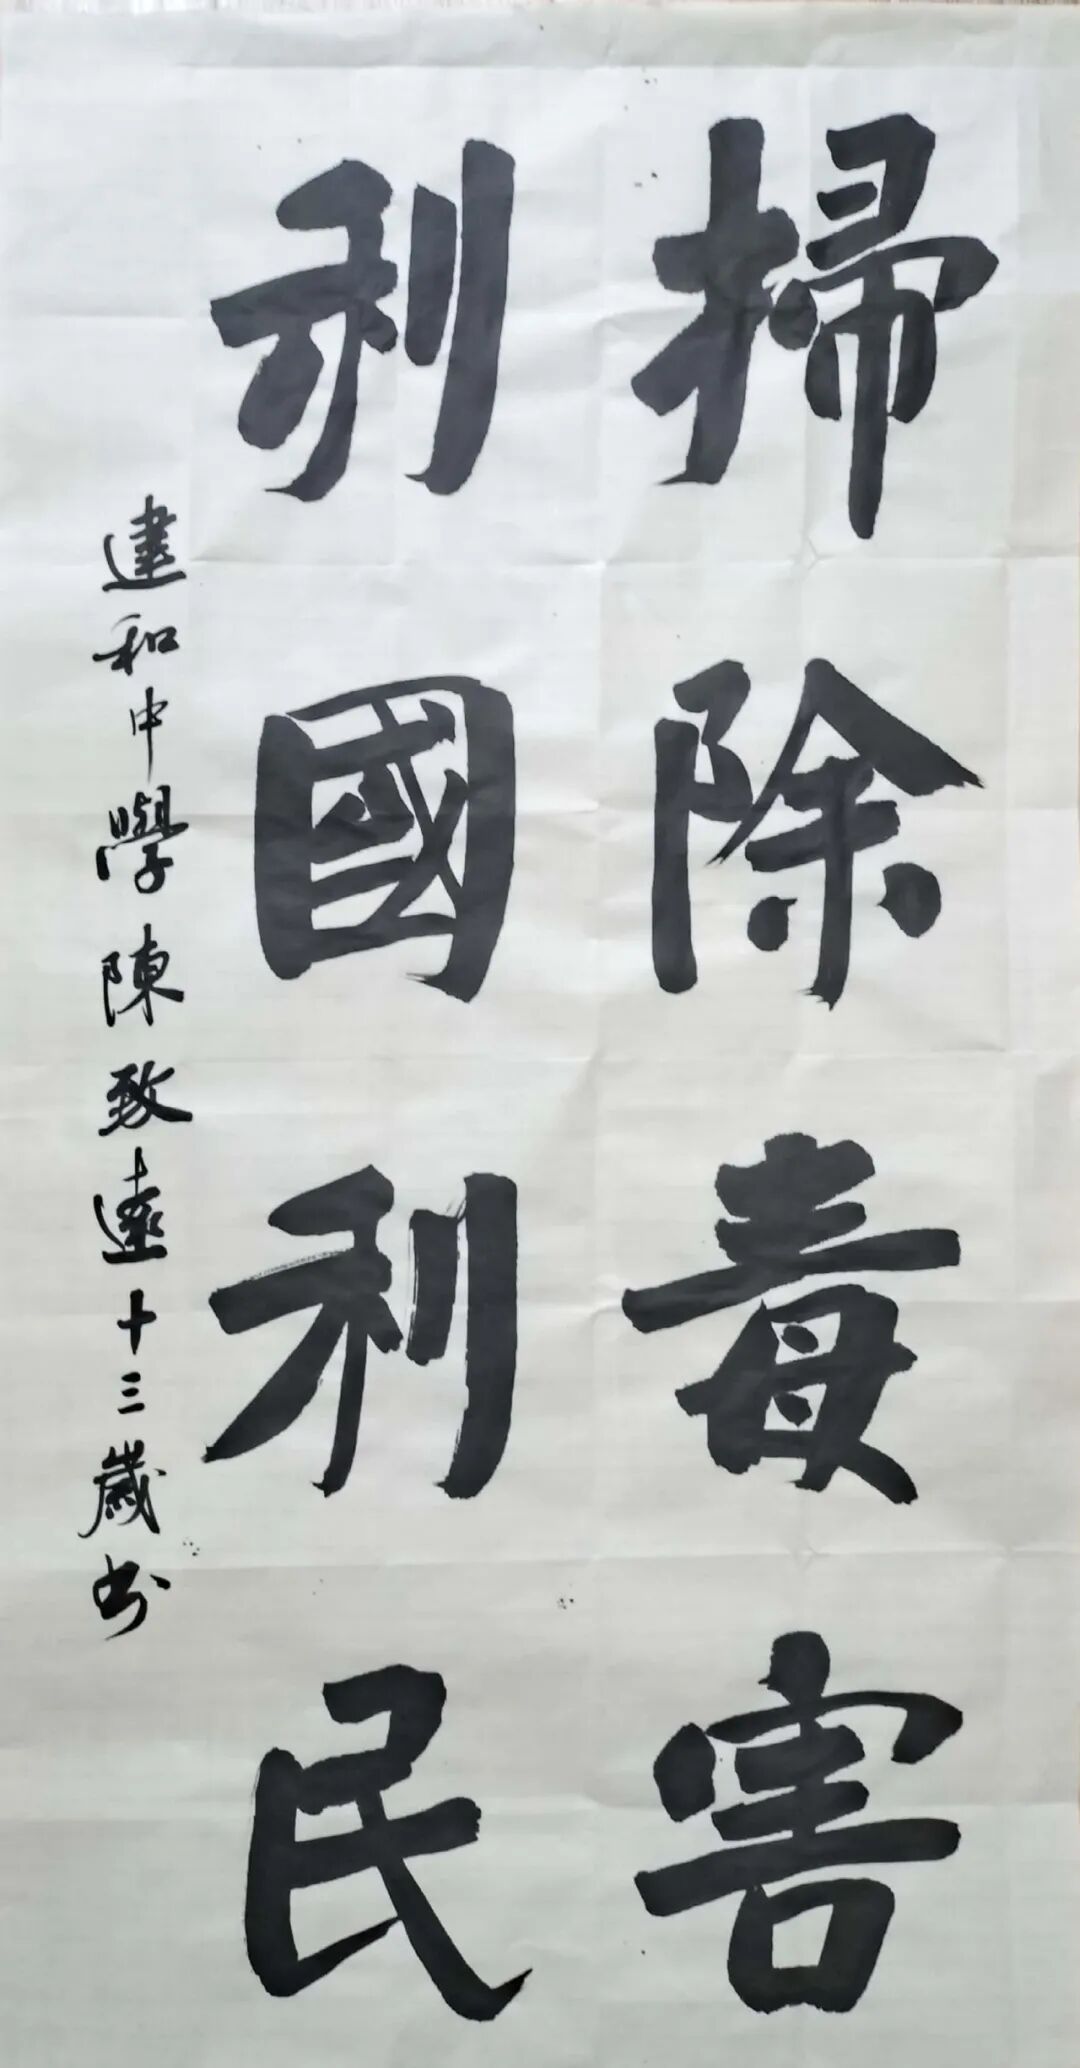 掃除毒害
利國利民
建和中學陳致遠十三歲书